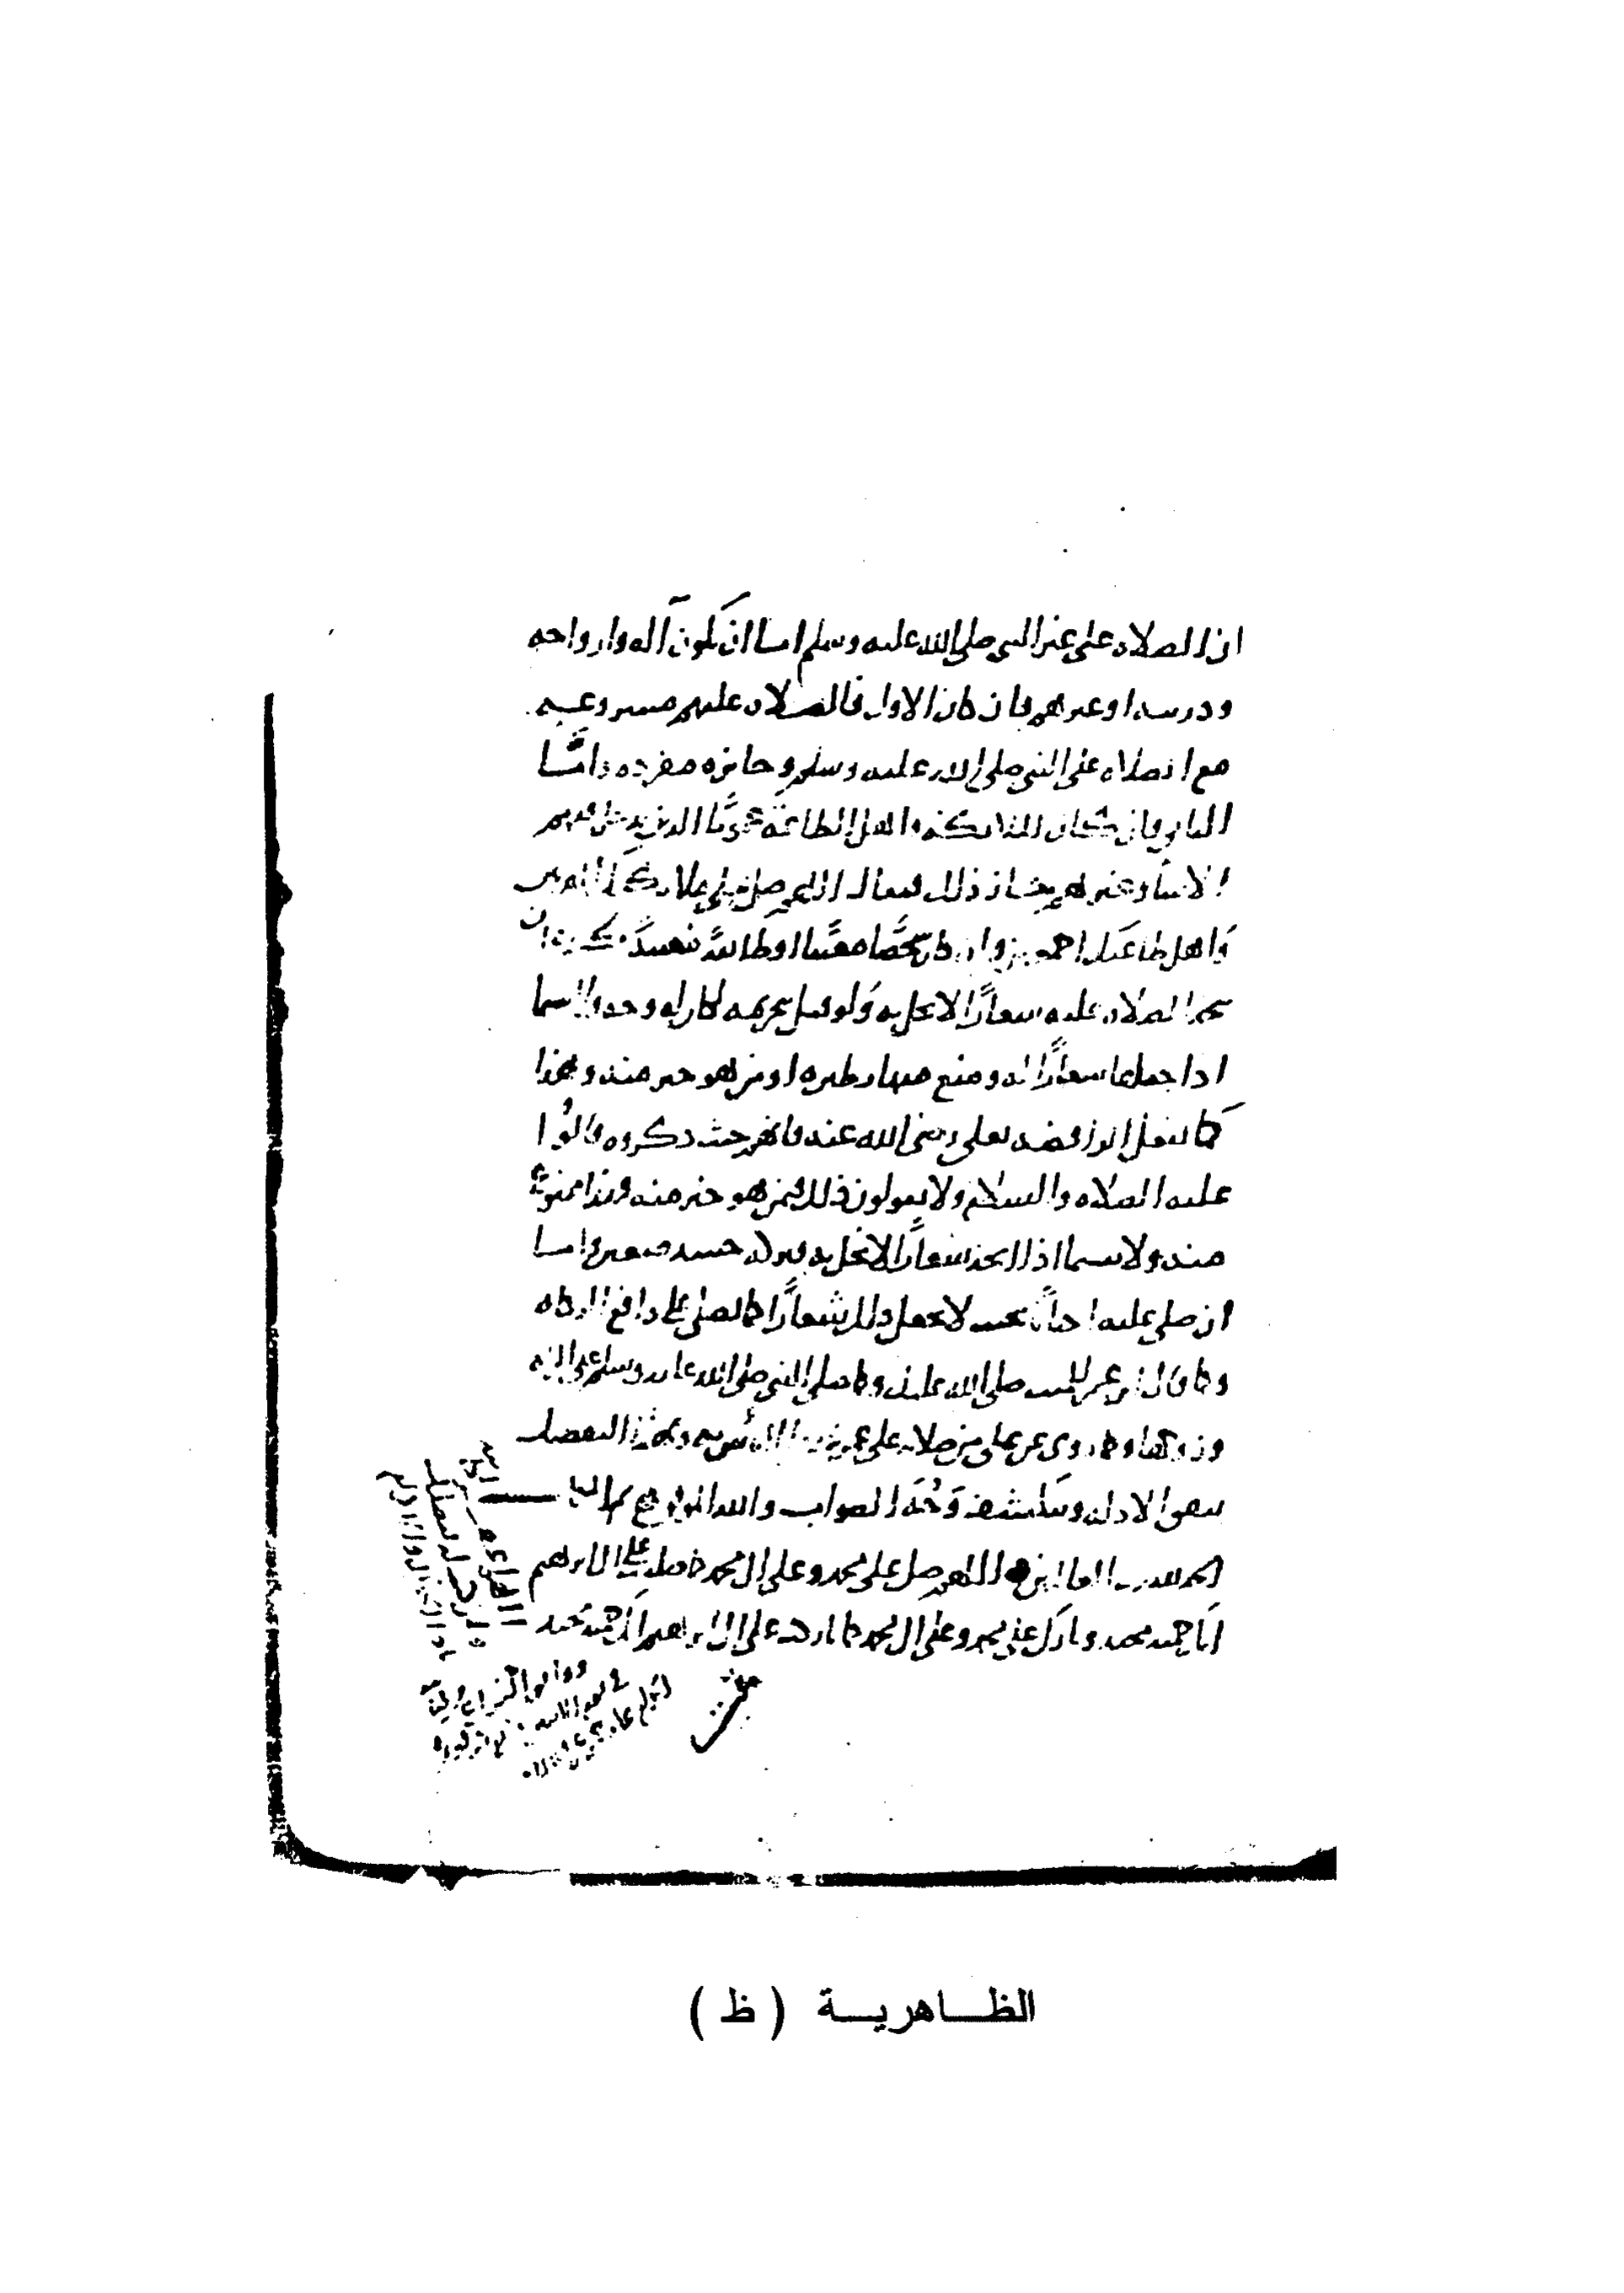 ان الصلاه على غير النبي صلى الله عليه وسلم اما ان يكون آله وازواجه
وذريته او غيرهم فان كان الاول فالصلاه عليهم مشروعه
مع الصلاه على النبي صلى الله عليه وسلم وجايزه مفرده واما
الثاني فان كان الملايكه واهل الطاعة عمومًا الذين يدخل فيهم
الانبيا وغيرهم جاز ذلك فيقال اللهم صل على ملايكتك المقربين
واهل طاعتك اجمعين وان كان شخصًا معينًا او طايفةً معينةً كره ان
يتخذ الصلاه عليه شعارًا لا يخل به ولو قيل بتحريمه لكان له وجه ولا سيما
اذا جعلها شعارًا له ومنع منها نظيره او من هو خير منه وهذا
كما تفعل الرافضه بعلي رضي الله عنه فانهم حيث ذكروه قالوا
عليه الصلاه والسلام ولا يقولون ذلك فيمن هو خير منه وهذا ممنوع
منه ولا سيما اذا اتخذ شعارًا لا يخل به فتركه حينئذ متعين واما
ان صلى عليه احيانًا بحيث لا يجعل ذلك شعارًا كما يصلى على دافع الزكاه
وكما قال ابن عمر للميت صلى الله عليه وكما صلى النبي صلى الله عليه وسلم على المراه
وزوجها وكما روي عن علي من صلاته على عمر فهذا لا باس به وبهذا التفصيل
تتفق الادله وينكشف وجه الصواب والله الموفق
الحمد لله رب العالمين اللهم صل على محمد وعلى ال محمد كما صليت على ال ابراهيم
انك حميد مجيد وبارك على محمد وعلى ال محمد كما باركت على ال ابراهيم انك حميد مجيد
الظاهرية ( ظ )